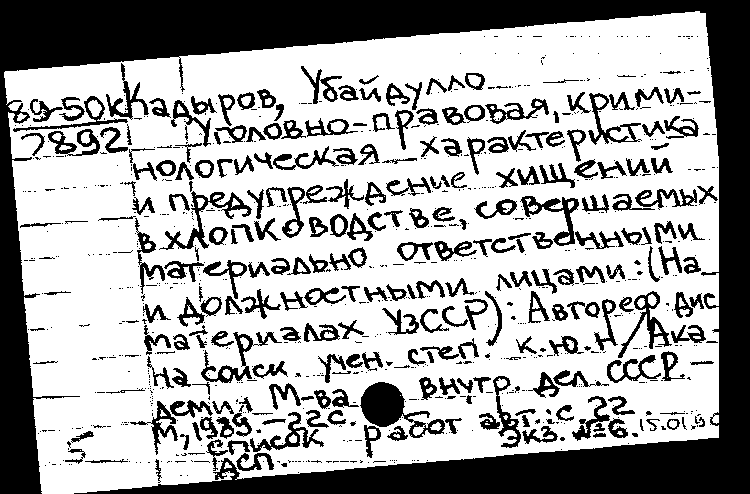 89-50к Кадыров, Убайдулло
7892 Уголовно-правовая, крими-
нологическая характеристика
и предупреждение хищений
в хлопководстве, совершаемых
материально ответственными
и должностными лицами: (На
материалах УзССР): Автореф. дис
на соиск. учен. степ. к.ю.н / Ака-
демия М-ва внутр. дел. СССР. —
М, 1989. — 22 с.
список работ авт.: с. 22.
Экз. №6. 15.01.90
5 дсп.